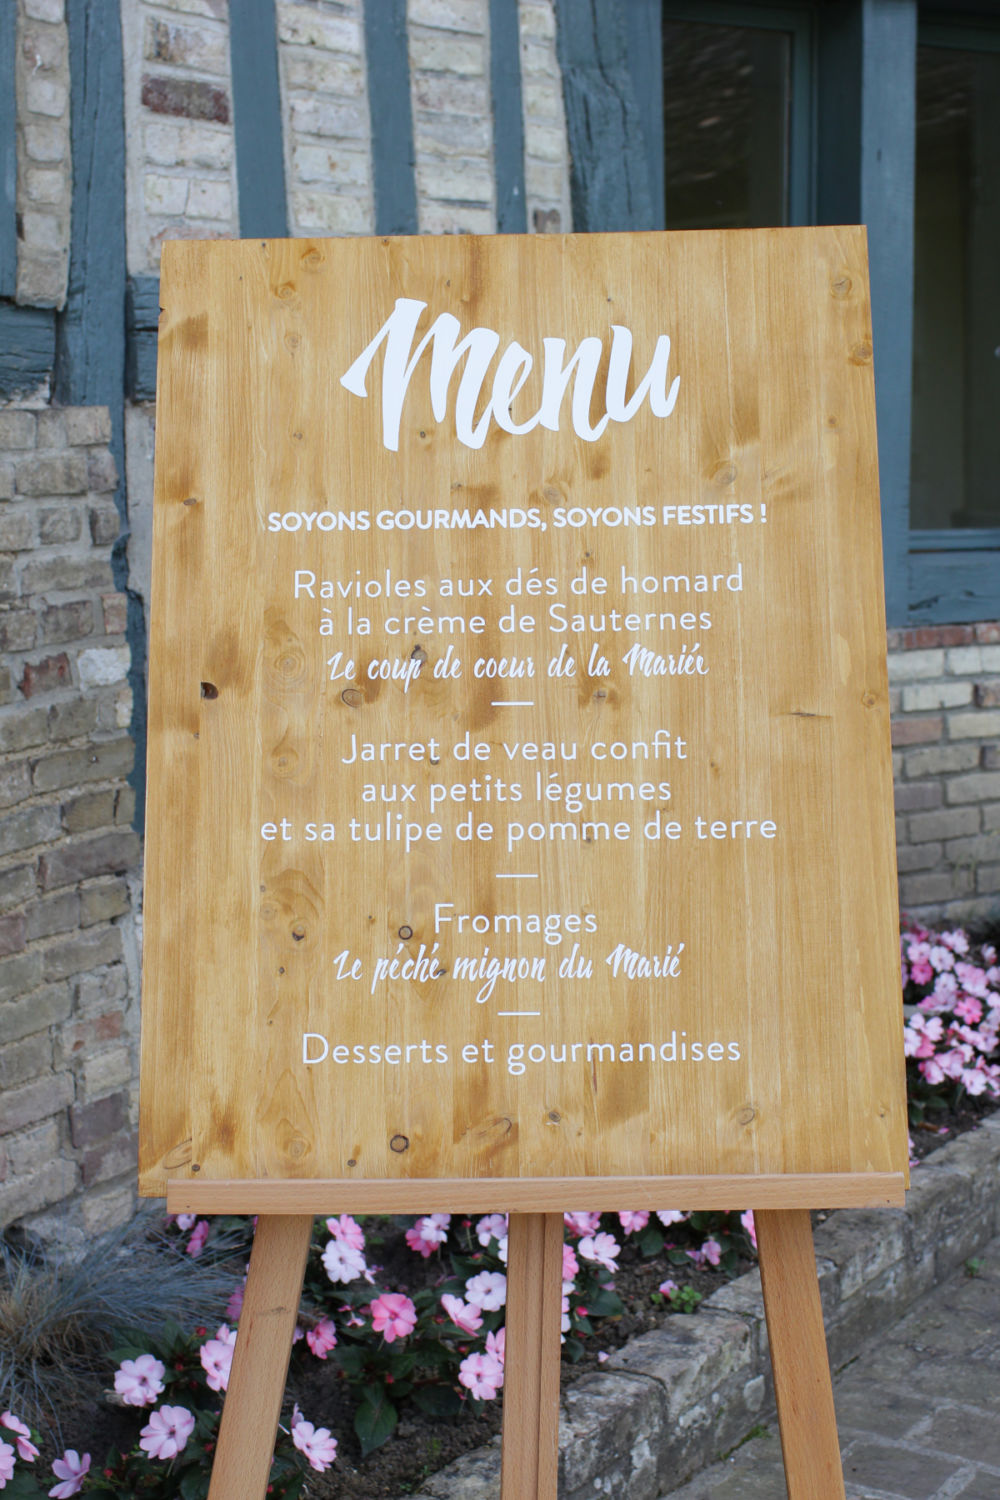 Menu
SOYONS GOURMANDS, SOYONS FESTIFS !
Ravioles aux dés de homard
à la crème de Sauternes
Le coup de coeur de la Mariée
Jarret de veau confit
aux petits légumes
et sa tulipe de pomme de terre
Fromages
Le péché mignon du Marié
Desserts et gourmandises